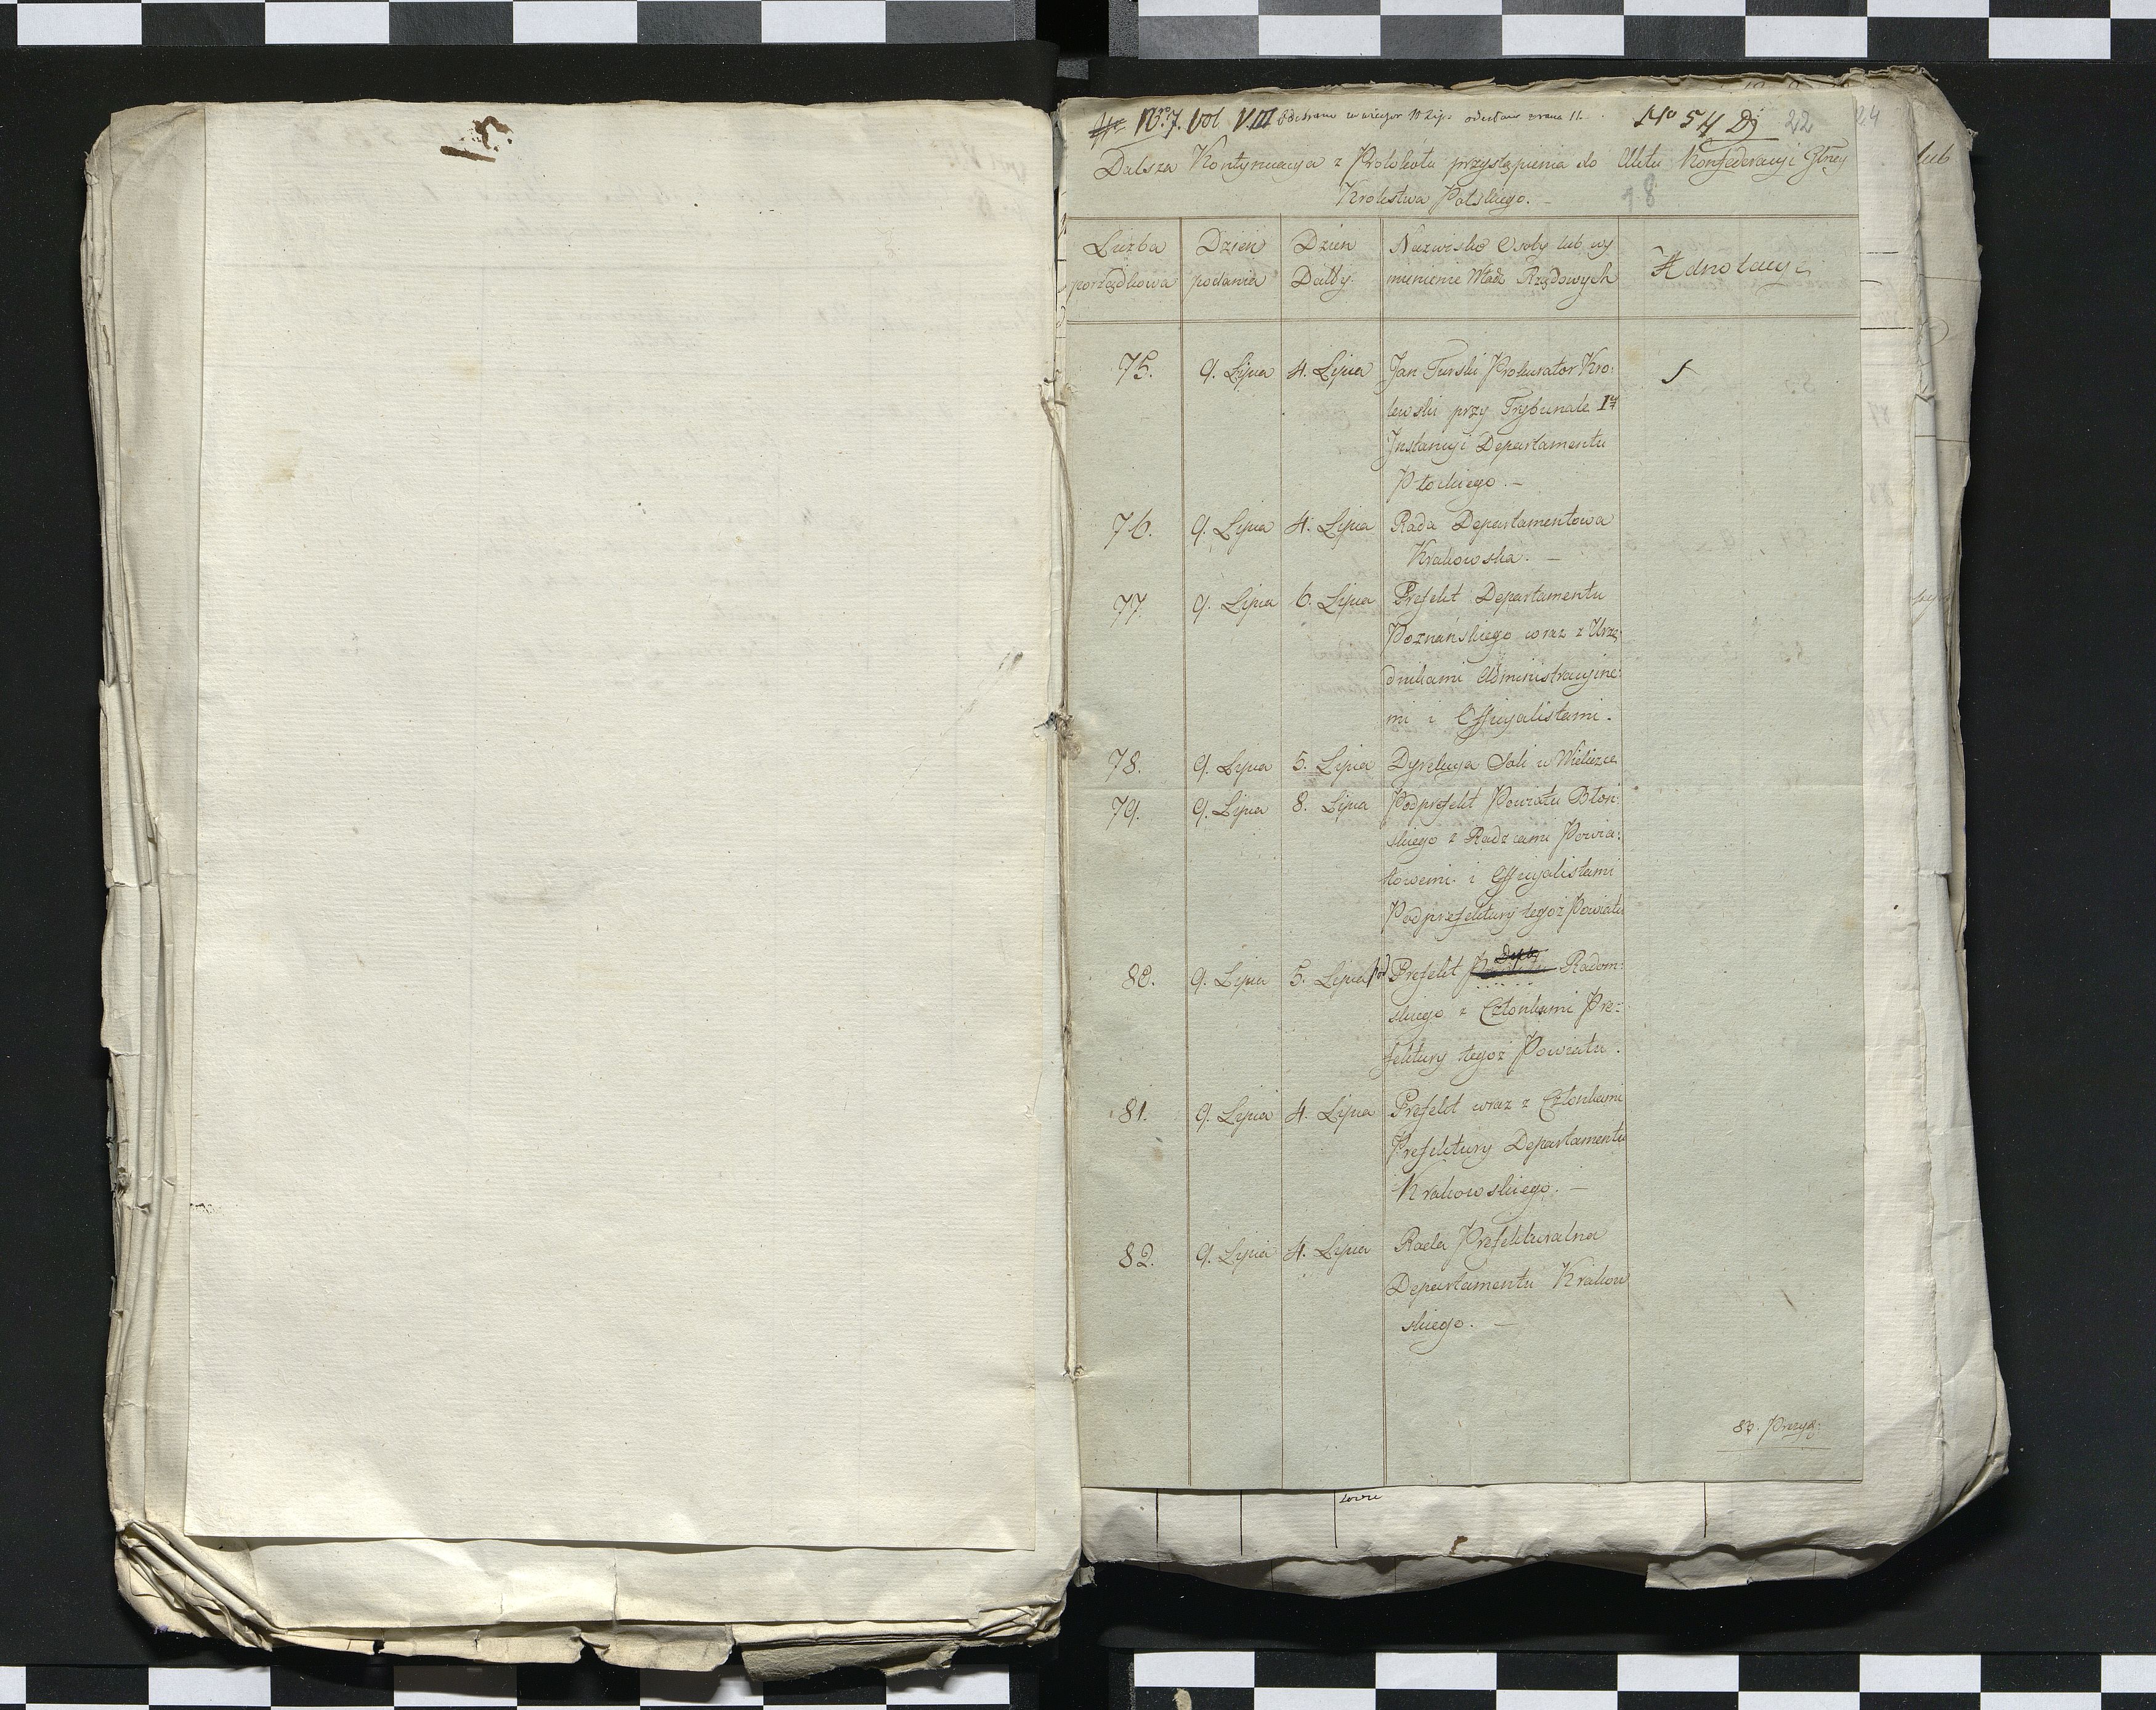 Nr. 7. Vol VIII Odebrane wieczor 10 Lip. odesłane z rana 11. No 54 D) 22
24
Dalsza Kontynuacya z Protokołu przystąpienia do Aktu Konfederacyi Głney
Krolestwa Polskiego. –
18
Liczba porządkowa
Dzień podania
Dzień Datty.
Nazwisko Osoby lub wy
mienienie Władz Rządowych
Adnotacyi
75. 9. Lipca 4. Lipca Jan Turski Prokurator Kro:
lewski przy Trybunale 1y
Instancyi Departamentu
Płockiego. –
76. 9. Lipca 4. Lipca Rada Departamentowa
Krakowska. –
77. 9. Lipca 6. Lipca Prefekt Departamentu
Poznańskiego wraz z Urzę
dnikami Administracyine:
mi i Officyalistami.
78. 9. Lipca 5. Lipca Dyrekcya Soli w Wieliczce
79. 9. Lipca 8. Lipca Podprefekt Powiatu Błoń:
skiego z Radzcami Powia:
towemi i Officyalistami
Podprefektury tegoż Powiatu
80. 9. Lipca 5. Lipca Pod Prefekt Powiatu Radom:
skiego z Członkami Pre:
fektury tegoż Powiatu.
81. 9. Lipca 4. Lipca Prefekt wraz z Członkami
Prefektury Departamentu
Krakowskiego. –
82. 9. Lipca 4. Lipca Rada Prefekturalna
Departamentu Krakow
skiego. –
83. Prezyd: